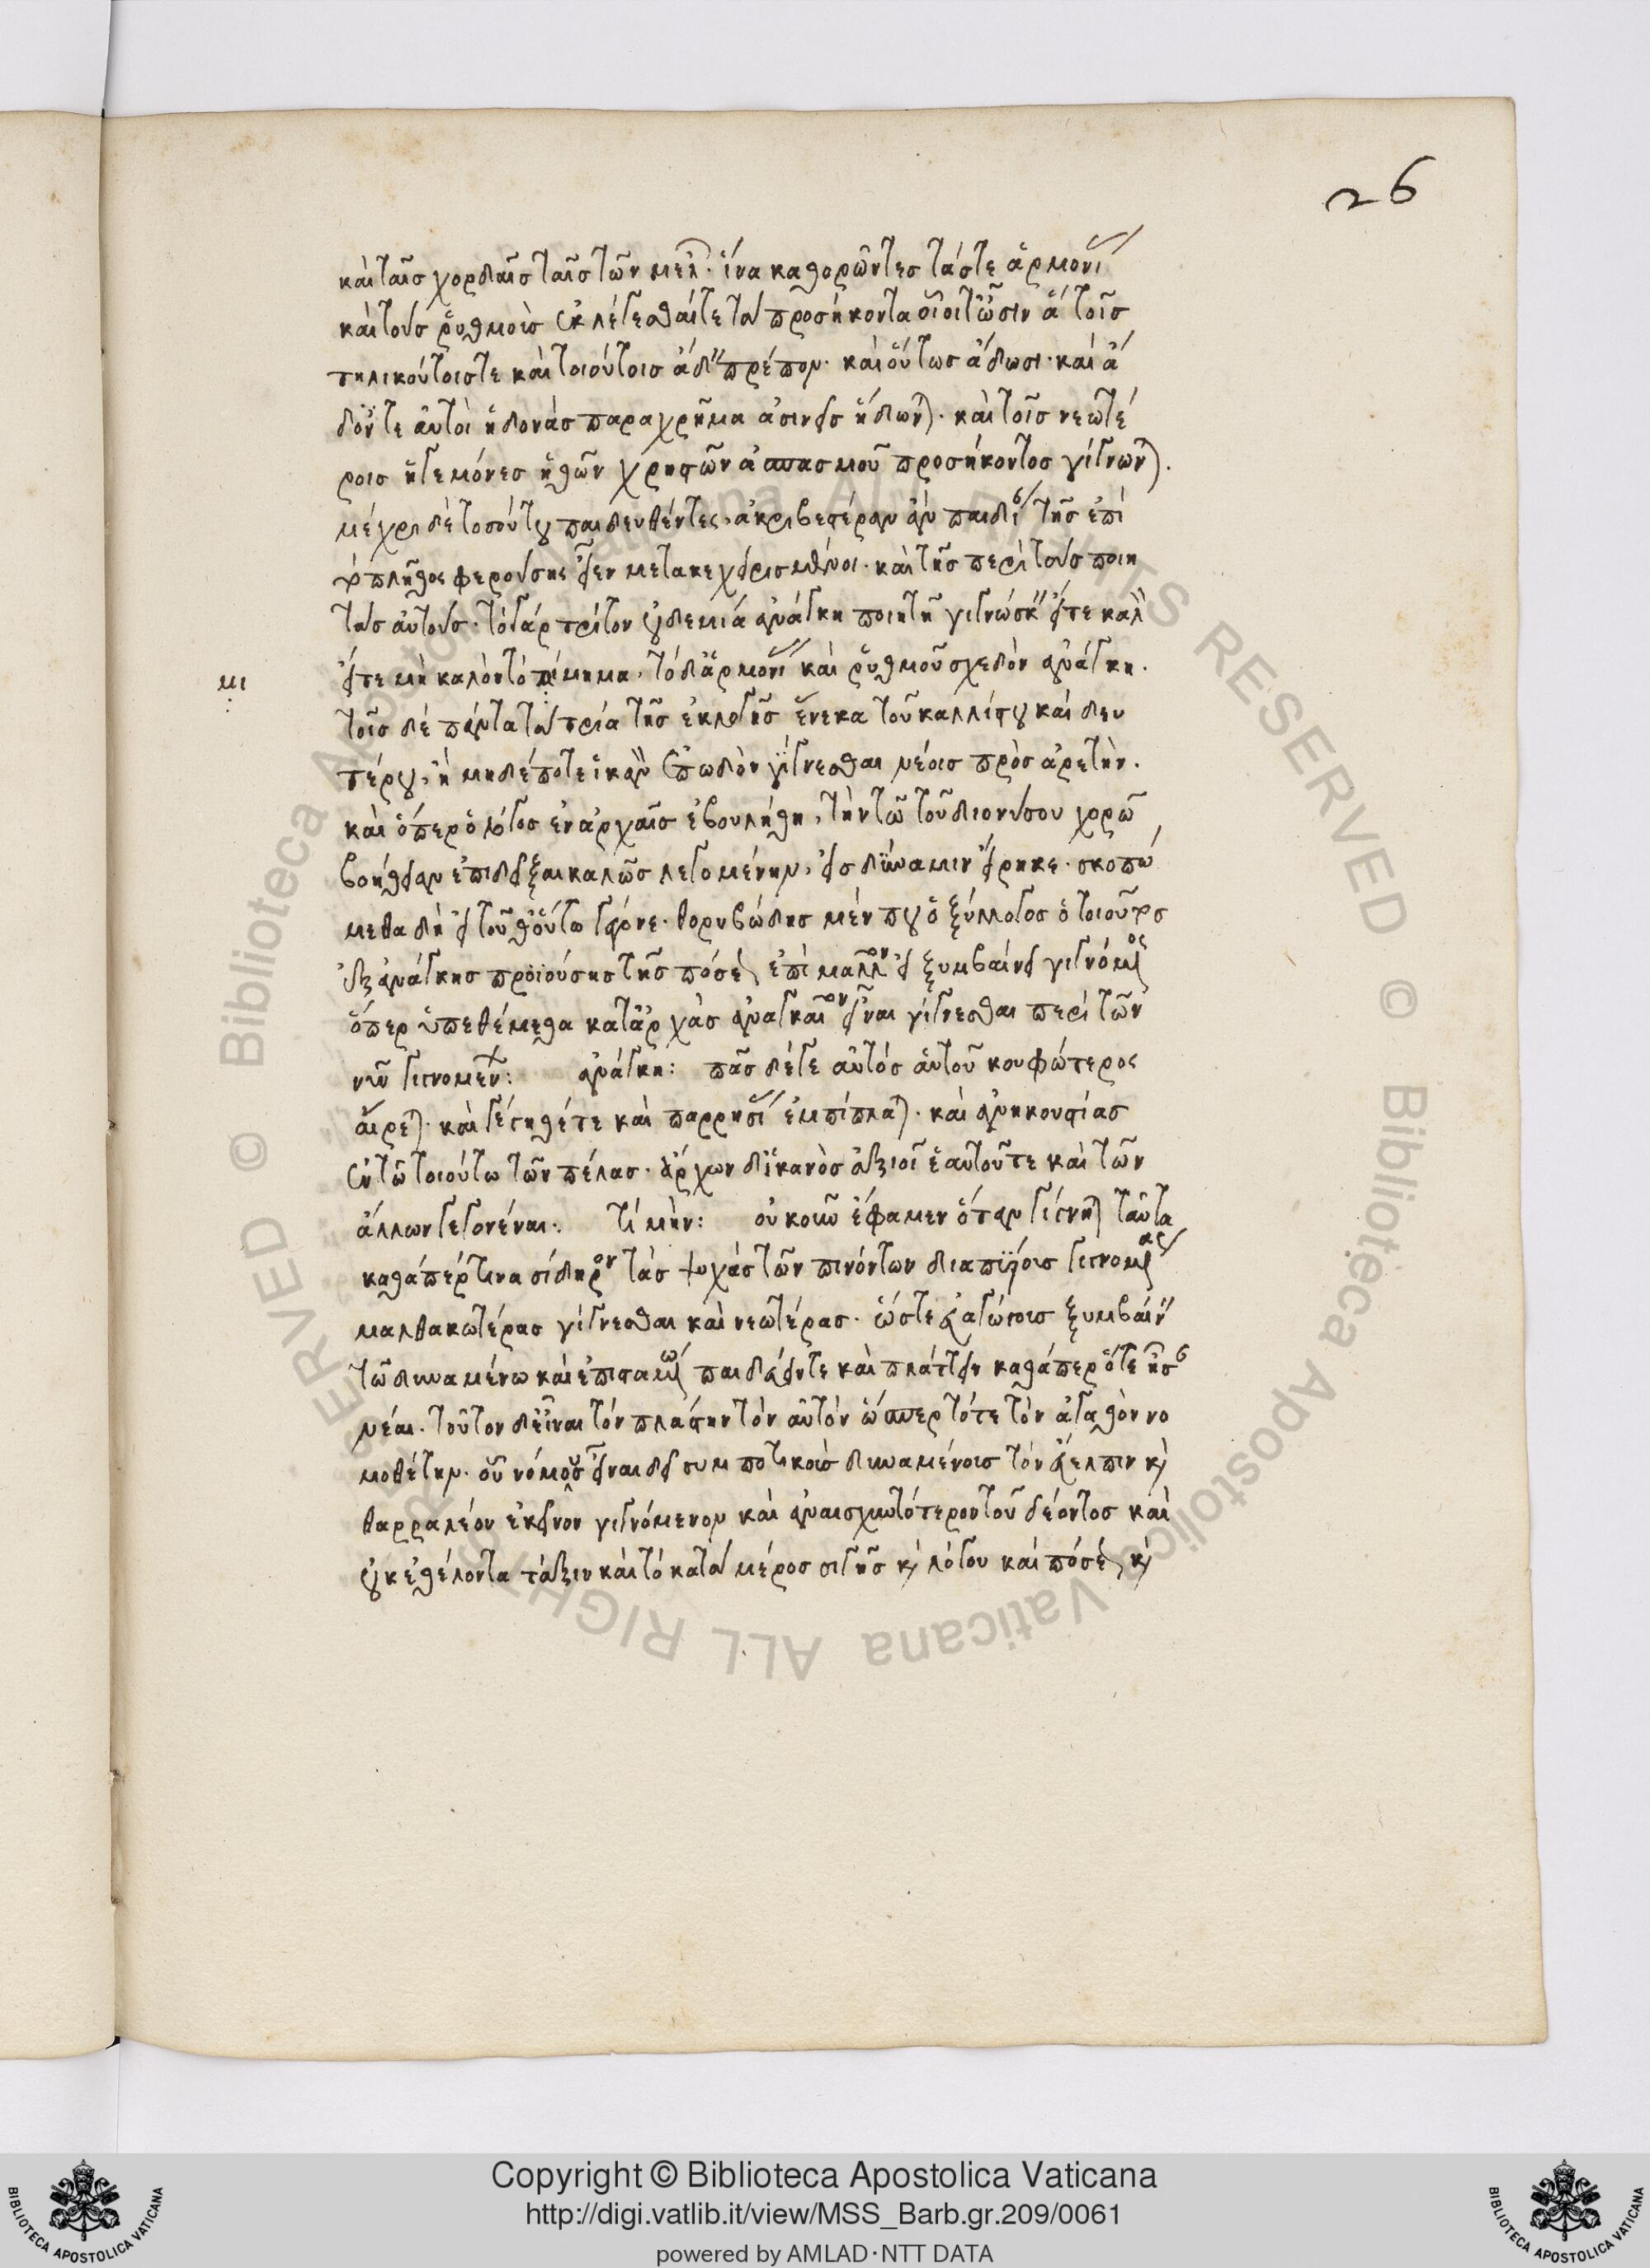 26
καὶ ταῖσ χορδαῖσ ταῖσ τῶν μελ̑· ἵνα καθορῶντεσ τάστε ἁρμονί
καὶ τοὺσ ῥυθμοὺσ ἐκλέγεσθαί τε τὰ προσήκοντα οἷοί τ' ὦσιν ἃ τοῖσ
τηλικούτοισ τε καὶ τοιούτοισ ἄδ" πρέπον· καὶ οὕτωσ ἄδωσι· καὶ ἄ
δοντε αὐτοὶ ἡδονάσ παραχρῆμα ἀσινεῖσ ἥδων)· καὶ τοῖσ νεωτέ
ροισ ἡγεμόνεσ ἠθῶν χρηστῶν ἀσπασμοῦ προσήκοντοσ γίγνων).
μέχρι δὲ τοσούτου παιδευθέντες, ἀκριβεστέραν ἂν παιδεί τῆσ ἐπὶ
τὸ πλῆθος φερούσης εἶεν μετακεχειρισμένοι· καὶ τῆσ περὶ τοὺσ ποιη
τὰσ αὐτούσ· τὸ γὰρ τρίτον οὐδεμιά ἀνάγκη ποιητῆ γιγνώσκ" εἴτε καλὸ
μι
εἴτε μὴ καλὸν τὸ μίμημα· τὸ δ' ἁρμονί καὶ ῥυθμοῦ σχεδὸν ἀνάγκη.
τοῖσ δὲ πάντα τὰ τρία τῆσ ἐκλογῆσ ἕνεκα τοῦ καλλίστου καὶ δευ
τέρου, ἢ μηδέποτε ἱκανὸ ἐπωδὸν γίγνεσθαι νέοισ πρὸσ ἀρετήν.
καὶ ὅπερ ὁ λόγοσ ἐν ἀρχαῖσ ἐβουλήθη, τὴν τῶ τοῦ διονύσου χορῶ
βοήθειαν ἐπιδεῖξαι καλῶσ λεγομένην, εἰσ δύναμιν εἴρηκε· σκοπώ
μεθα δὴ εἰ τοῦθ' οὕτω γέγονε· θορυβώδησ μὲν που ὁ ξύλλογοσ ὁ τοιοῦτοσ
ἐξ ἀνάγκησ προϊούσησ τῆσ πόσε, ἐπὶ μᾶλλον εἰ ξυμβαίνει γιγνόμενος
ὅπερ ὑπεθέμεθα κατ' ἀρχὰσ ἀναγκαῖον εἶναι γίγνεσθαι περὶ τῶν
νῦν γιγνομέν: ἀνάγκη: πᾶσ δέ γε αὐτόσ αὑτοῦ κουφότερος
αἴρε)· καὶ γέγηθέ τε καὶ παρρησί ἐμπίπλα)· καὶ ἀνηκουστίασ
ἐν τῶ τοιούτω τῶν πέλασ· ἄρχων δ' ἱκανὸσ ἀξιοῖ ἑαυτοῦ τε καὶ τῶν
ἄλλων γεγονέναι· τί μήν: οὐκοῦν ἔφαμεν ὅταν γίγνη) ταῦτα
καθάπέρ τινα σίδηρον τὰσ ψυχὰσ τῶν πινόντων διαπύροισ γιγνομένας
μαλθακωτέρασ γίγνεσθαι καὶ νεωτέρασ· ὥστε εὐαγώγοισ ξυμβαίν"
τῶ δυναμένω καὶ ἐπισταμένω παιδεύειν τε καὶ πλάττειν καθάπερ ὅτε ἦσ
νέαι· τοῦτον δ' εἶναι τόν πλάστην τὸν αὐτὸν ὥσπερ τότε τὸν ἀγαθὸν νο
μοθέτην· οὗ νόμους εἶναι δεῖ συμποτικοὺσ δυναμένουσ τὸν εὔελπιν κ)
θαρραλέον ἐκεῖνον γιγνόμενον καὶ ἀναισχυντότερον τοῦ δέοντοσ καὶ
οὐκ ἐθέλοντα τάξιν καὶ τὸ κατὰ μέροσ σιγῆσ κ) λόγου καὶ πόσε, κ)
Copyright © Biblioteca Apostolica Vaticana
http://digi.vatlib.it/view/MSS_Barb.gr.209/0061
powered by AMLAD·NTT DATA
© Biblioteca Apostolica Vaticana ALL RIGHTS RESERVED © Biblioteca Apostolica Vaticana ALL RIGHTS RESERVED
BIBLIOTECA APOSTOLICA VATICANA
BIBLIOTECA APOSTOLICA VATICANA